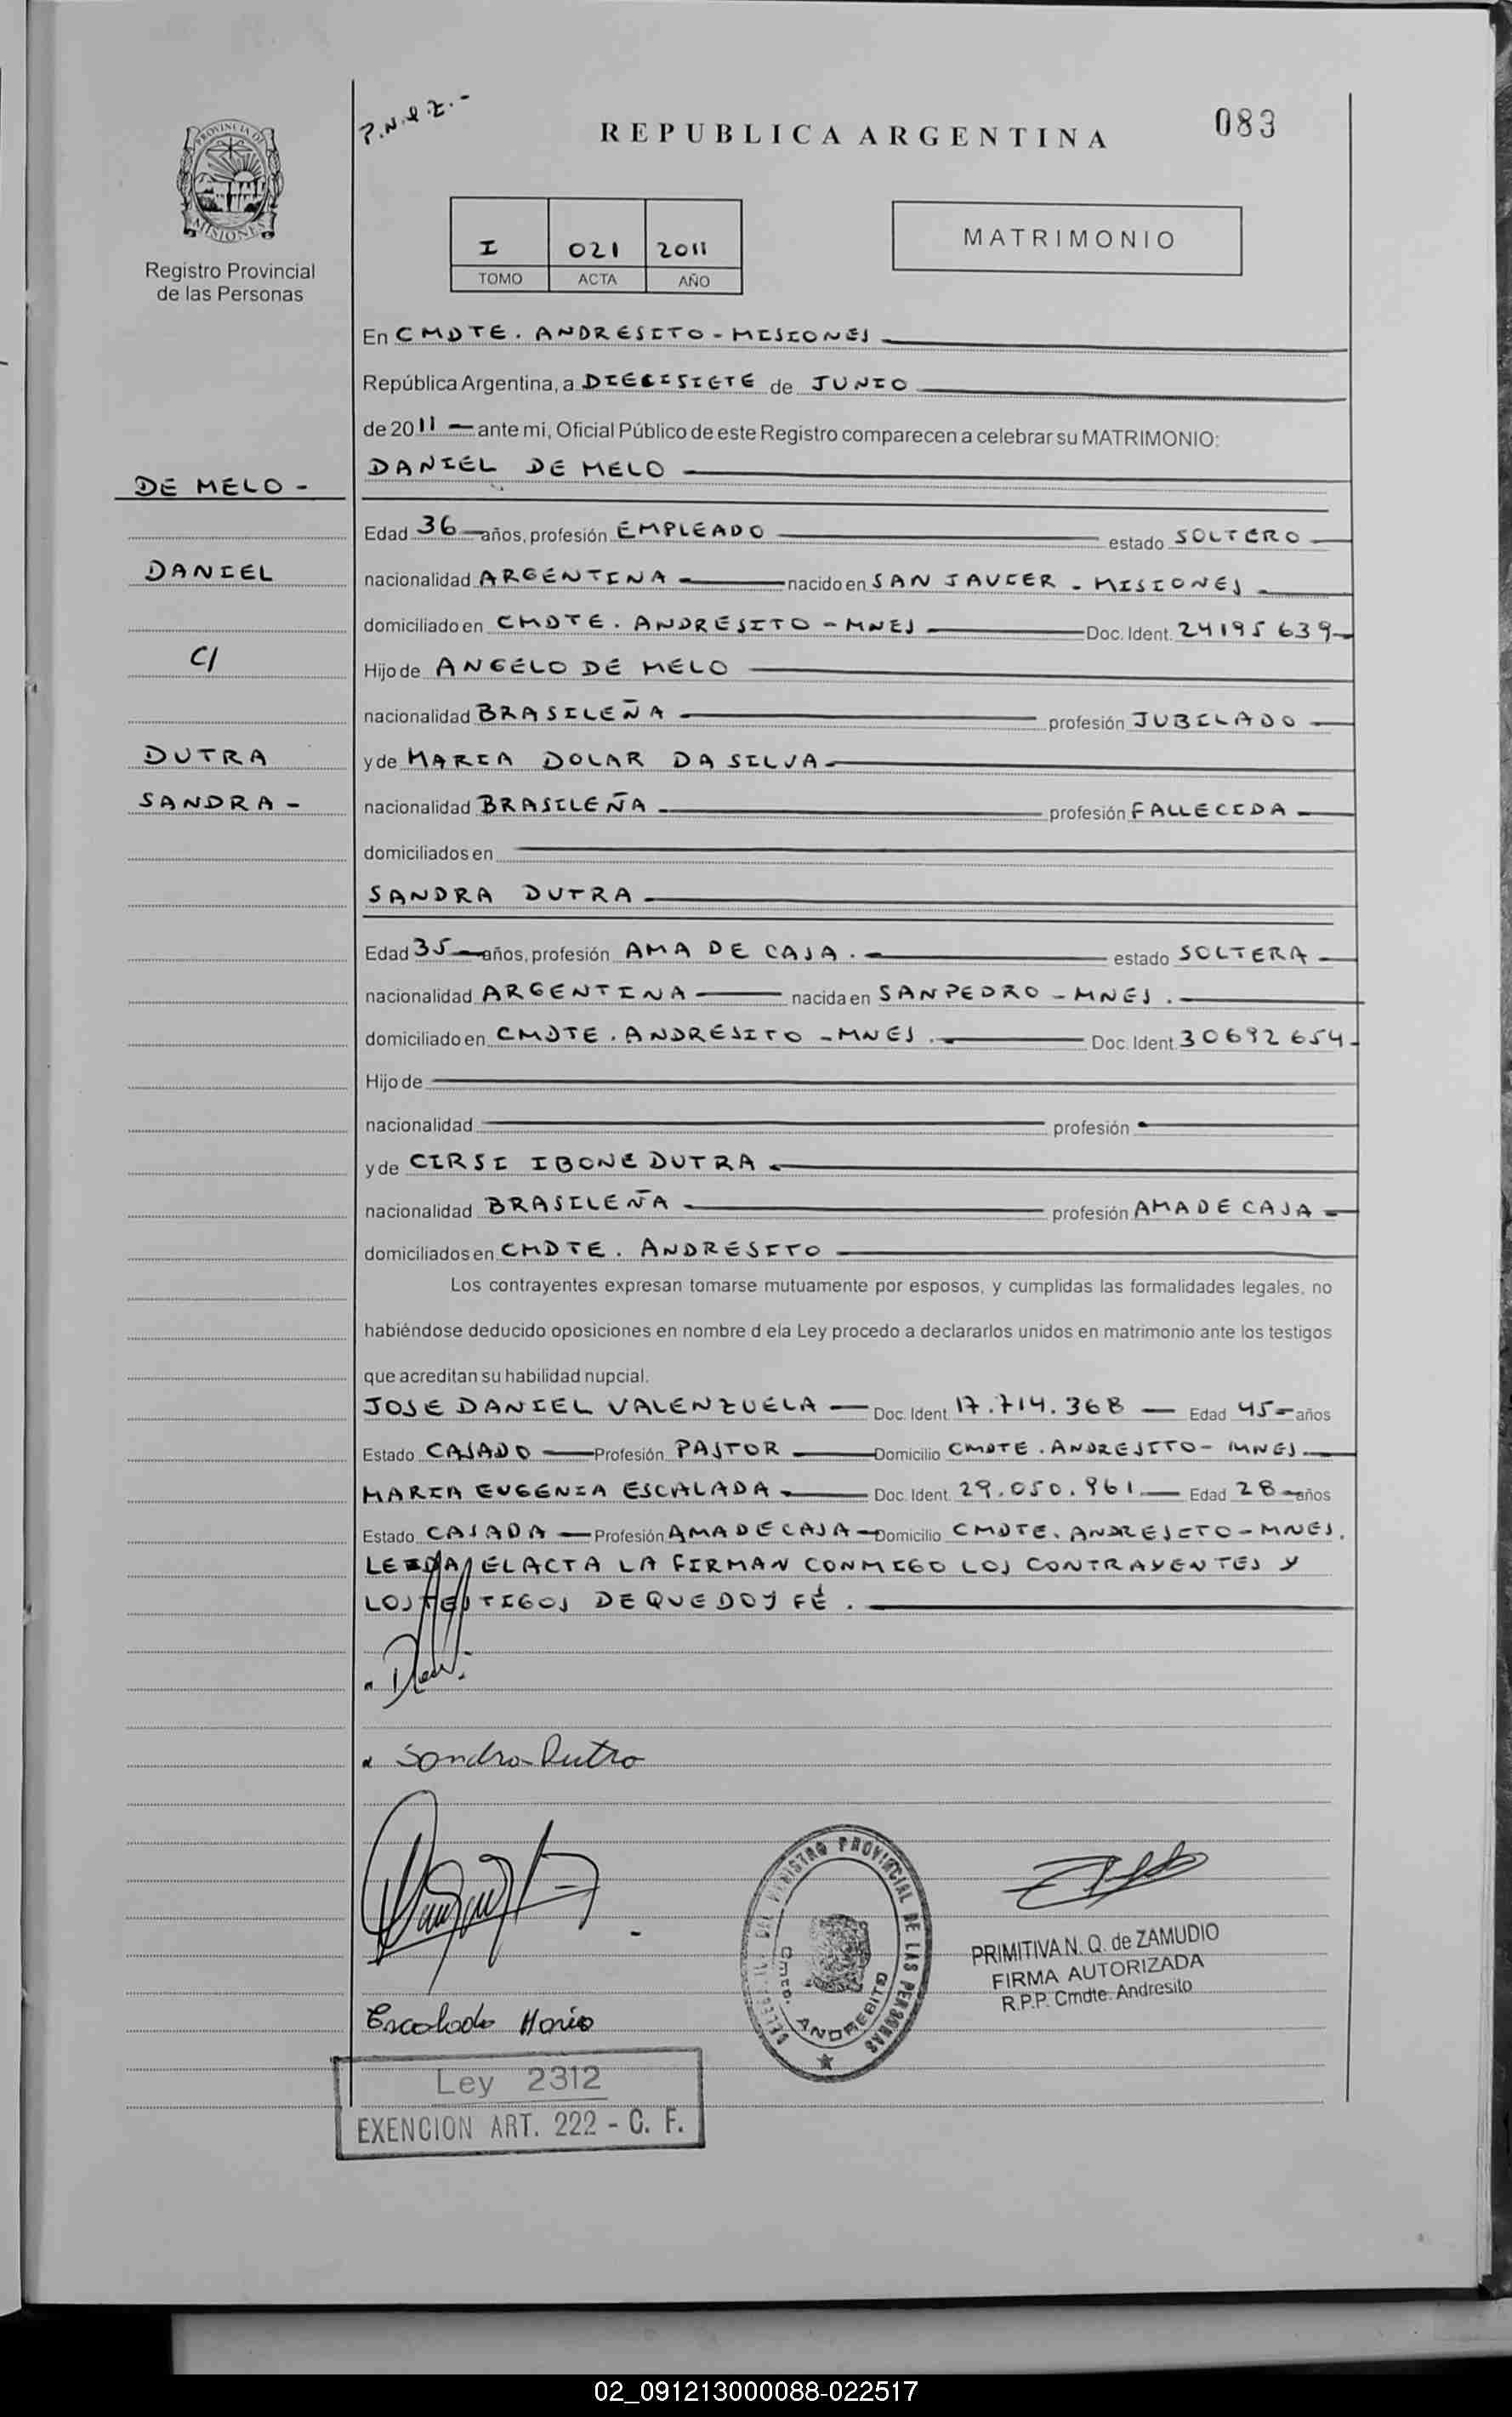 P.N.Q.Z.-
REPUBLICA ARGENTINA
083
PROVINCIA DE
MISIONES
Registro Provincial
de las Personas
I 021 2011
TOMO ACTA AÑO
MATRIMONIO
En CMDTE. ANDRESITO - MISIONES
República Argentina, a DIECISIETE de JUNIO
de 2011 ante mi, Oficial Público de este Registro comparecen a celebrar su MATRIMONIO:
DANIEL DE MELO
DE MELO -
Edad 36 años, profesión EMPLEADO estado SOLTERO
DANIEL
nacionalidad ARGENTINA nacido en SAN JAVIER - MISIONES
domiciliado en CMDTE. ANDRESITO - MNES Doc. Ident. 24195639
C/
Hijo de ANGELO DE MELO
nacionalidad BRASILEÑA profesión JUBILADO
DUTRA
y de MARIA DOLAR DA SILVA
SANDRA -
nacionalidad BRASILEÑA profesión FALLECIDA
domiciliados en
SANDRA DUTRA
Edad 35 años, profesión AMA DE CASA. estado SOLTERA
nacionalidad ARGENTINA nacida en SAN PEDRO - MNES.
domiciliado en CMDTE. ANDRESITO - MNES. Doc. Ident. 30692654
Hijo de
nacionalidad profesión
y de CIRSI IBONE DUTRA
nacionalidad BRASILEÑA profesión AMA DE CASA
domiciliados en CMDTE. ANDRESITO
Los contrayentes expresan tomarse mutuamente por esposos, y cumplidas las formalidades legales, no
habiéndose deducido oposiciones en nombre d ela Ley procedo a declararlos unidos en matrimonio ante los testigos
que acreditan su habilidad nupcial.
JOSE DANIEL VALENZUELA Doc. Ident. 17.714.368 Edad 45 años
Estado CASADO Profesión PASTOR Domicilio CMDTE. ANDRESITO - MNES.
MARIA EUGENIA ESCALADA Doc. Ident. 29.050.961 Edad 28 años
Estado CASADA Profesión AMA DE CASA Domicilio CMDTE. ANDRESITO - MNES.
LEIDA EL ACTA LA FIRMAN CONMIGO LOS CONTRAYENTES Y
LOS TESTIGOS DE QUE DOY FÉ.
Sandra Dutra
REGISTRO PROVINCIAL DE LAS PERSONAS
Cmte. ANDRESITO
PRIMITIVA N. Q. de ZAMUDIO
FIRMA AUTORIZADA
R.P.P. Cmdte. Andresito
Escalada Maria
Ley 2312
EXENCION ART. 222 - C. F.
02_091213000088-022517